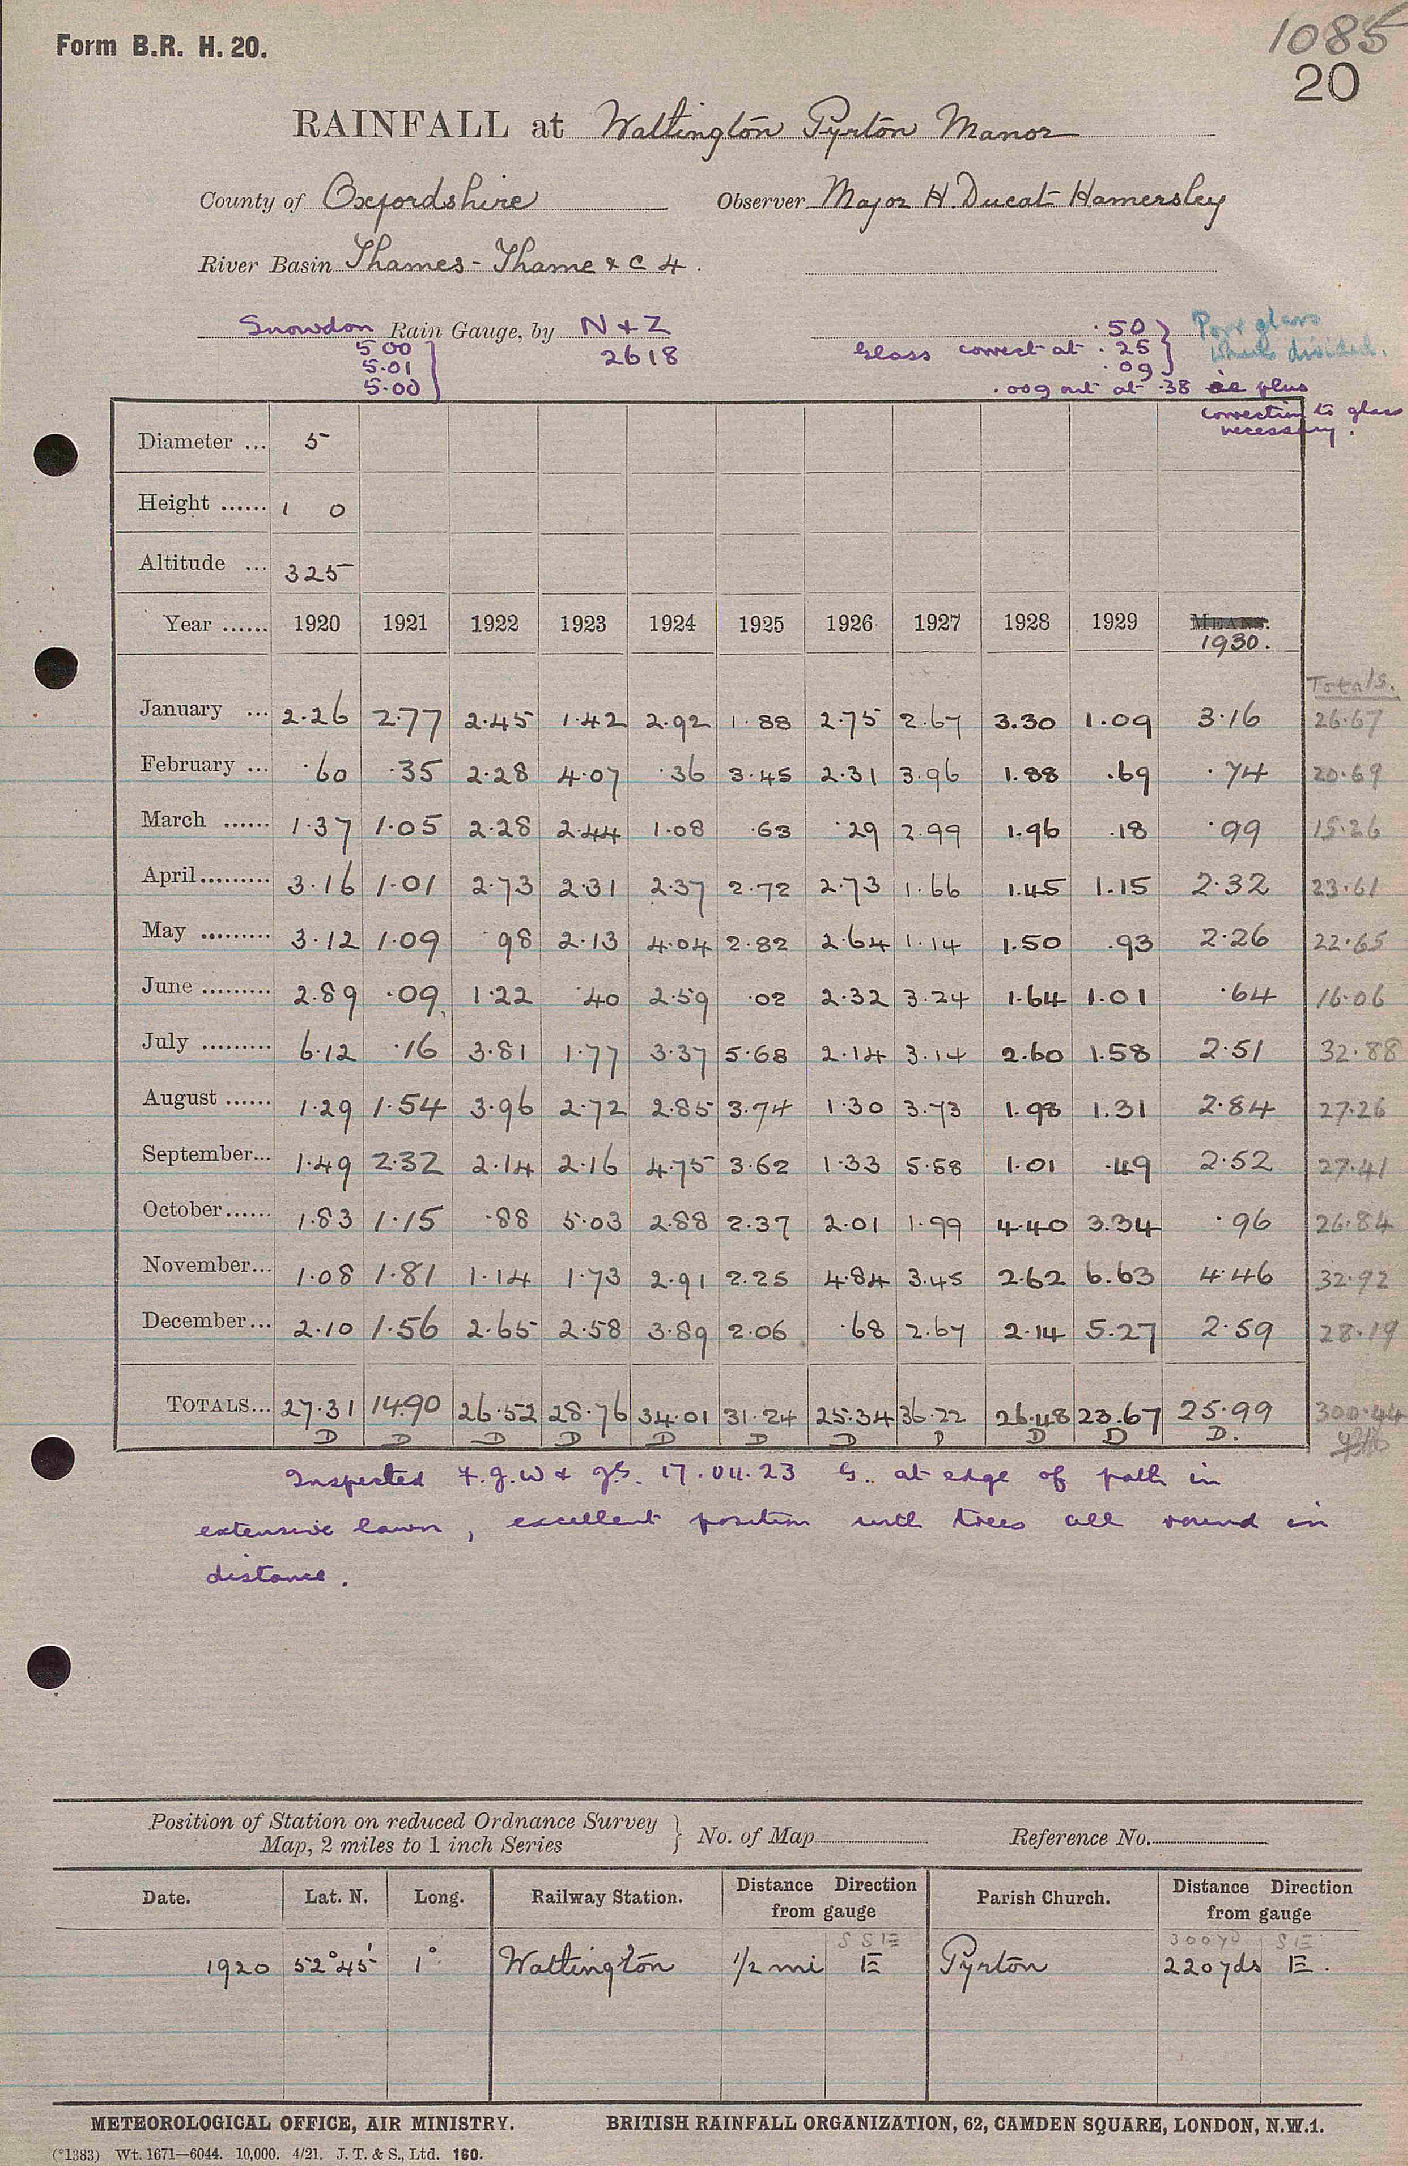 1085
Form B.R. H. 20.
20
RAINFALL at Watlington Pyrton Manor
County of Oxfordshire Observer Major H. Ducat Hamersley
River Basin Thames - Thame & C 4.
Snowdon Rain Gauge, by N & Z ·50 } Poor glass
5.00 } 2618 Glass correct at ·25 } divided.
5.01 } ·09 }
5.00 } .009 out at .38 ie plus
correction to glass
necessary.
Diameter ... 5
Height ...... 1 0
Altitude ... 325
Year ...... 1920 1921 1922 1923 1924 1925 1926 1927 1928 1929 MEANS.
1930.
Totals.
January ... 2.26 2.77 2.45 1.42 2.92 1.88 2.75 2.67 3.30 1.09 3.16 26.67
February ... .60 .35 2.28 4.07 .36 3.45 2.31 3.96 1.88 .69 .74 20.69
March ...... 1.37 1.05 2.28 2.44 1.08 .63 .29 2.99 1.96 .18 .99 15.26
April ......... 3.16 1.01 2.73 2.31 2.37 2.72 2.73 1.66 1.45 1.15 2.32 23.61
May ......... 3.12 1.09 .98 2.13 4.04 2.82 2.64 1.14 1.50 .93 2.26 22.65
June ......... 2.89 .09 1.22 .40 2.59 .02 2.32 3.24 1.64 1.01 .64 16.06
July ......... 6.12 .16 3.81 1.77 3.37 5.68 2.14 3.14 2.60 1.58 2.51 32.88
August ...... 1.29 1.54 3.96 2.72 2.85 3.74 1.30 3.73 1.98 1.31 2.84 27.26
September... 1.49 2.32 2.14 2.16 4.75 3.62 1.33 5.58 1.01 .49 2.52 27.41
October ...... 1.83 1.15 .88 5.03 2.88 2.37 2.01 1.99 4.40 3.34 .96 26.84
November... 1.08 1.81 1.14 1.73 2.91 2.25 4.84 3.45 2.62 6.63 4.46 32.92
December... 2.10 1.56 2.65 2.58 3.89 2.06 .68 2.67 2.14 5.27 2.59 28.19
TOTALS... 27.31 14.90 26.52 28.76 34.01 31.24 25.34 36.22 26.48 23.67 25.99 300.44
D D D D D D D D D D D.
Inspected F.J.W & J.G. 17.VII.23 G. at edge of path in
extensive lawn, excellent position with trees all round in
distance.
Position of Station on reduced Ordnance Survey } No. of Map Reference No.
Map, 2 miles to 1 inch Series
Date. Lat. N. Long. Railway Station. Distance Direction from gauge Parish Church. Distance Direction from gauge
SSE 300 yd SE
1920 52°45' 1° Watlington 1/2 mi E Pyrton 220 yds E.
METEOROLOGICAL OFFICE, AIR MINISTRY. BRITISH RAINFALL ORGANIZATION, 62, CAMDEN SQUARE, LONDON, N.W.1.
(*1383) Wt. 1671—6044. 10,000. 4/21. J. T. & S., Ltd. 160.